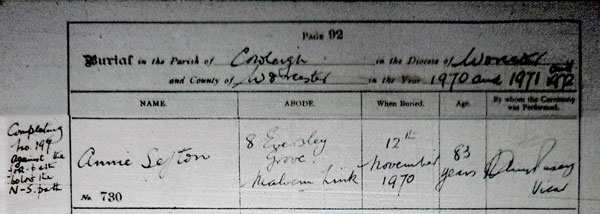 PAGE 92
Burial in the Parish of Cowleigh in the Diocese of Worcester
and County of Worcester in the Year 1970 and 1971 and 1972
NAME. ABODE. When Buried. Age. By whom the Ceremony was Performed.
Completing
no. 199
against the
below the
N-S. path
Annie Sefton
8 Eversley
Grove
Malvern Link
12th
November
1970
83
years
Vicar
No 730